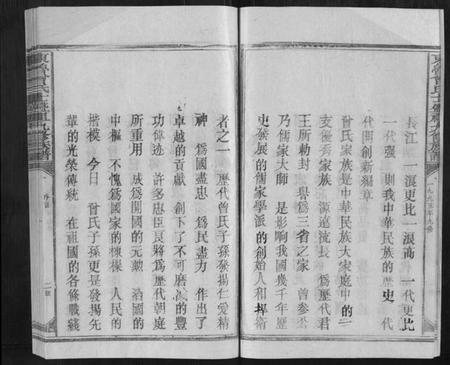 長江 一浪更比一浪高 一代更比
一代强 則我中華民族的歷史 代
代開創新編章
曾氏家族是中華民族大家庭中的一
支優秀家族 源遠流長 爲歷代君
王所勅封 三省之家 曾參公
乃儒家大師 是影響我國幾千年歷
史發展的儒家學派的創始人和捍衛
者之一 歷代曾氏子孫發揚仁愛精
神 爲國盡忠 爲民盡力 作出了
卓越的貢獻 創下了不可磨滅的豐
功偉迹 許多忠臣良將爲歷代朝庭
所重用 成爲開國的元勳 治國的
中樞 不愧爲國家的棟樑 人民的
楷模 今日 曾氏子孫更是發揚先
輩的光榮傳統 在祖國的各條戰綫
序言